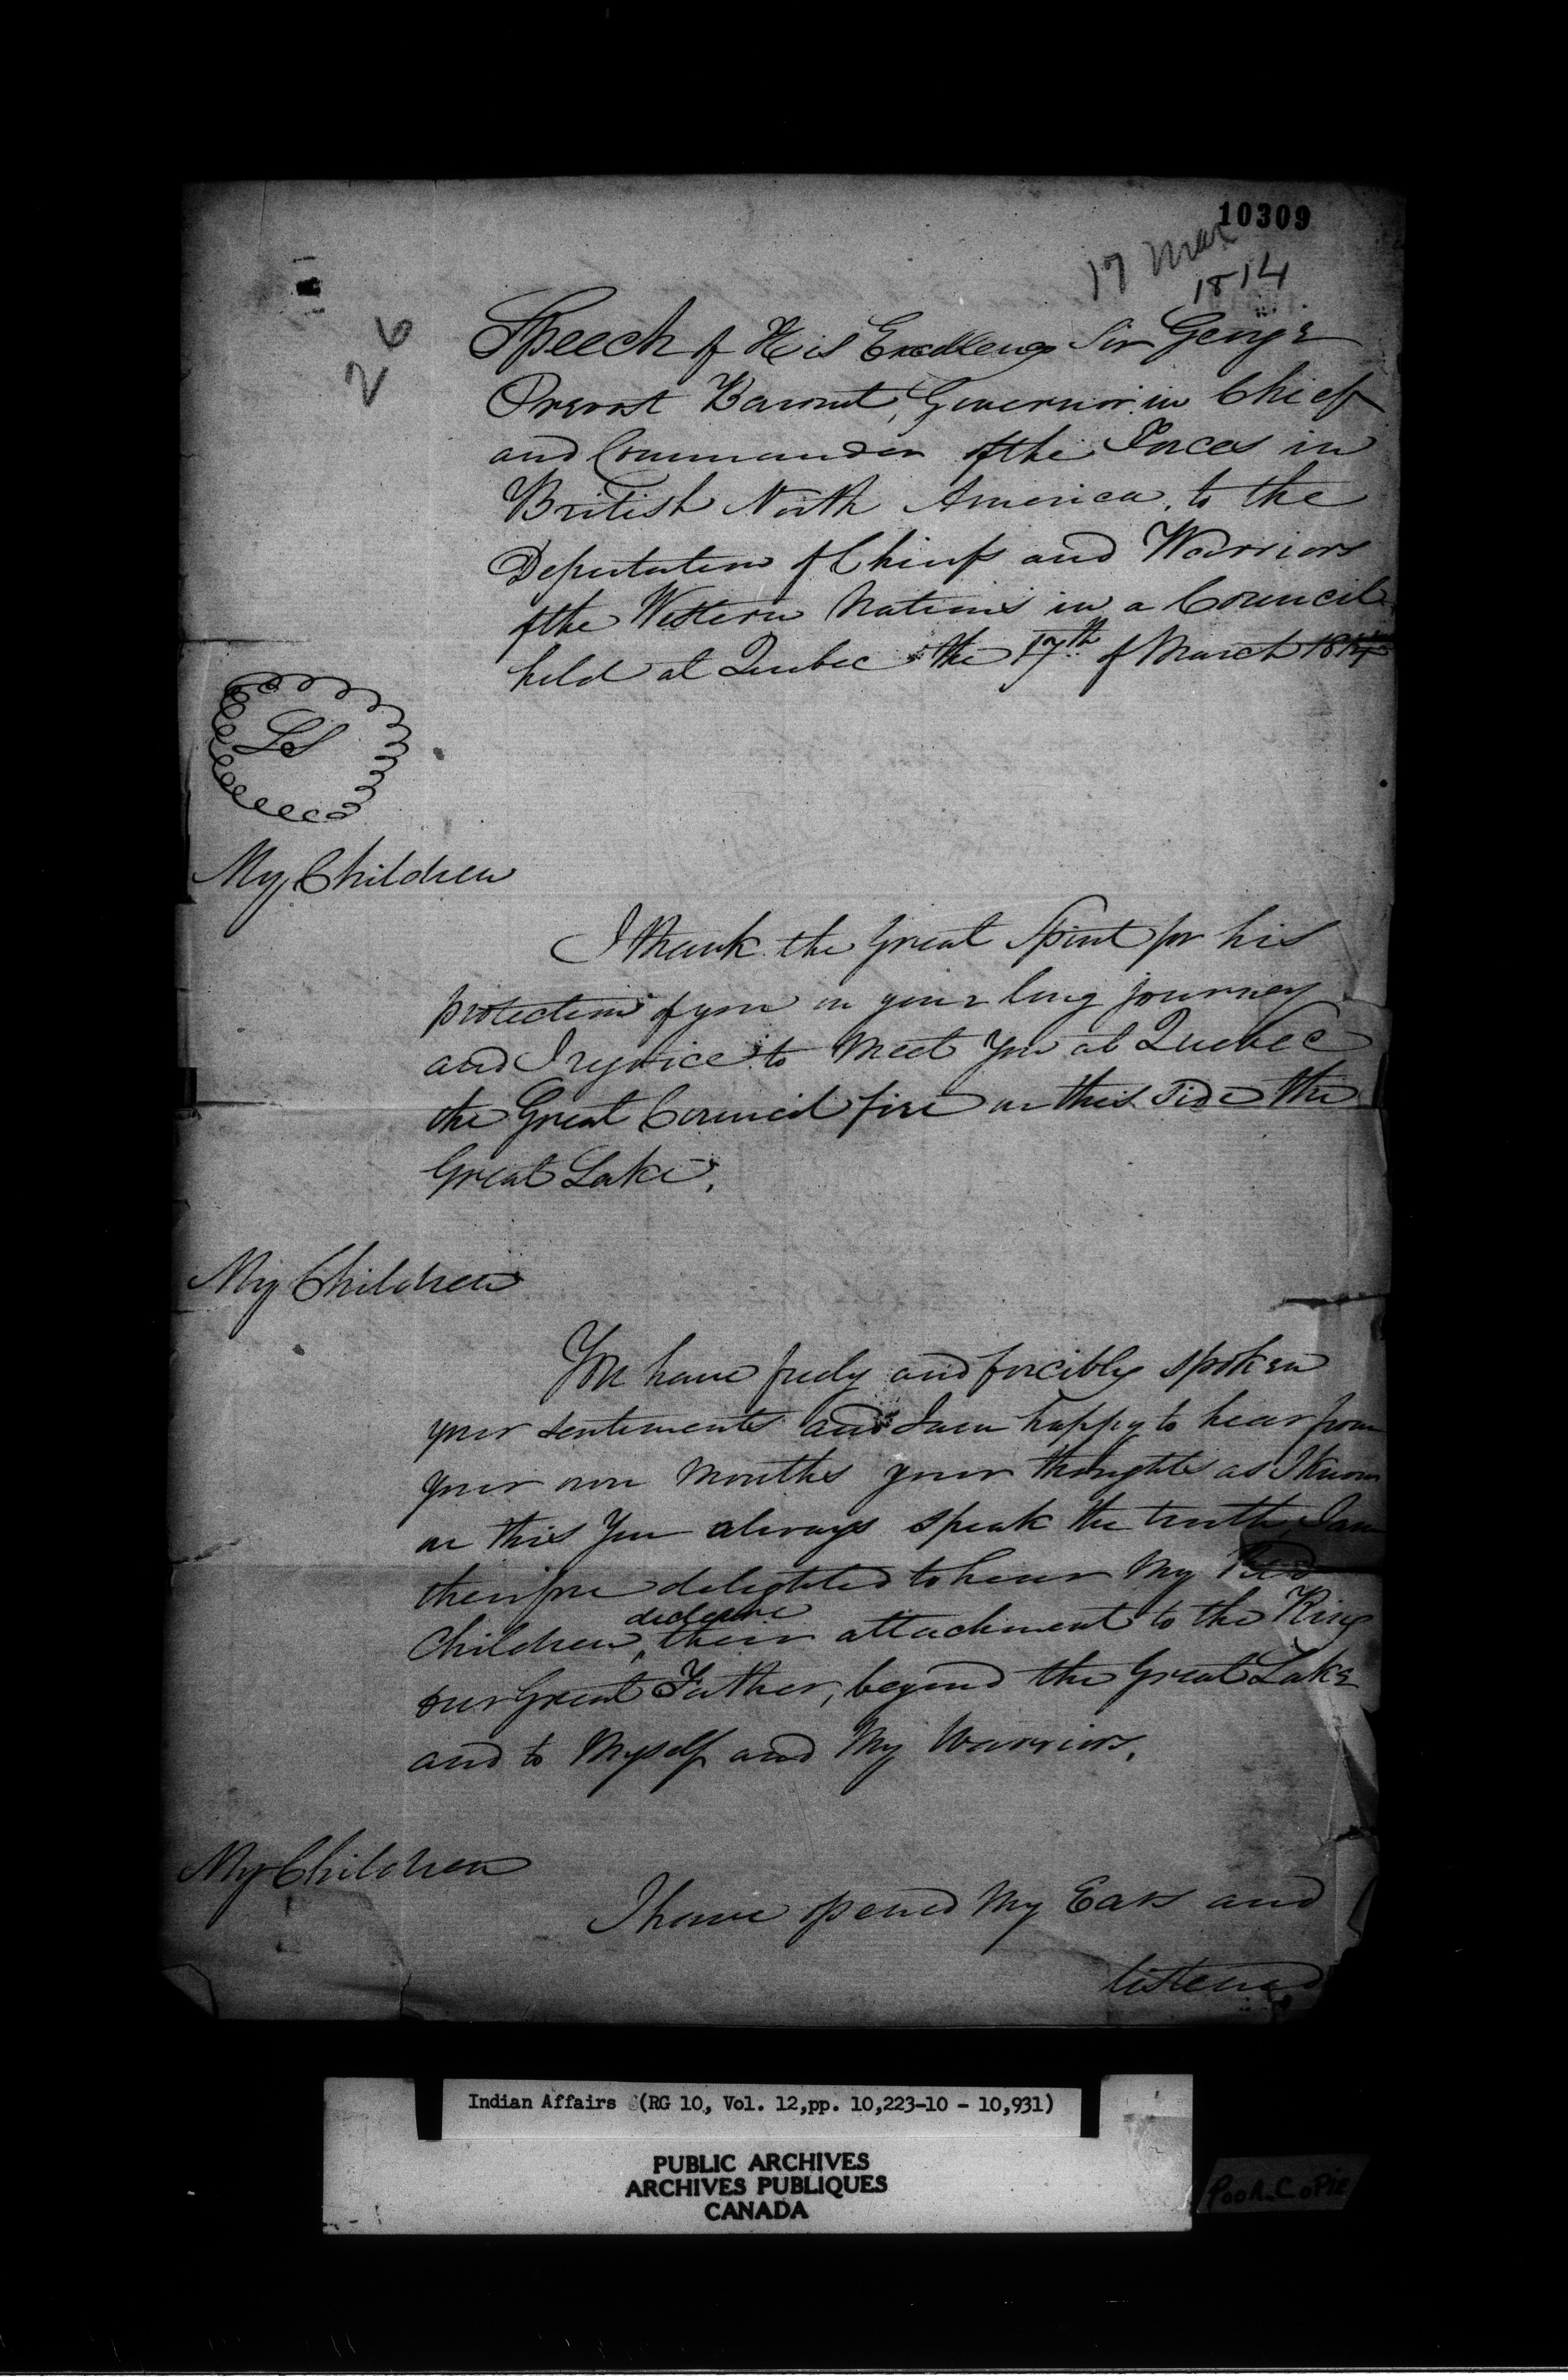 10309
17 Mar
1814
26
Speech of His Excellency Sir George
Prevost Baronet, Governor in Chief
and Commander of the Forces in
British North America, to the
Deputation of Chiefs and Warriors
of the Western Nations in a Council
held at Quebec the 17th of March 1814
LS
My Children
I thank the Great Spirit for his
protection of you on your long journey
and I rejoice to Meet You at Quebec
the Great Council fire on this side the
Great Lake.
My Children
You have freely and forcibly spoken
your sentiments and I am happy to hear from
your own Mouths your thoughts as I know
on this You always speak the truth, I am
therefore delighted to hear My Red
declare
Children, their attachment to the King
our Great Father, beyond the Great Lake
and to Myself and My Warriors.
My Children
I have opened My Ears and
listened
Indian Affairs (RG 10, Vol. 12, pp. 10,223-10 - 10,931)
PUBLIC ARCHIVES
ARCHIVES PUBLIQUES
CANADA
POOR COPIE